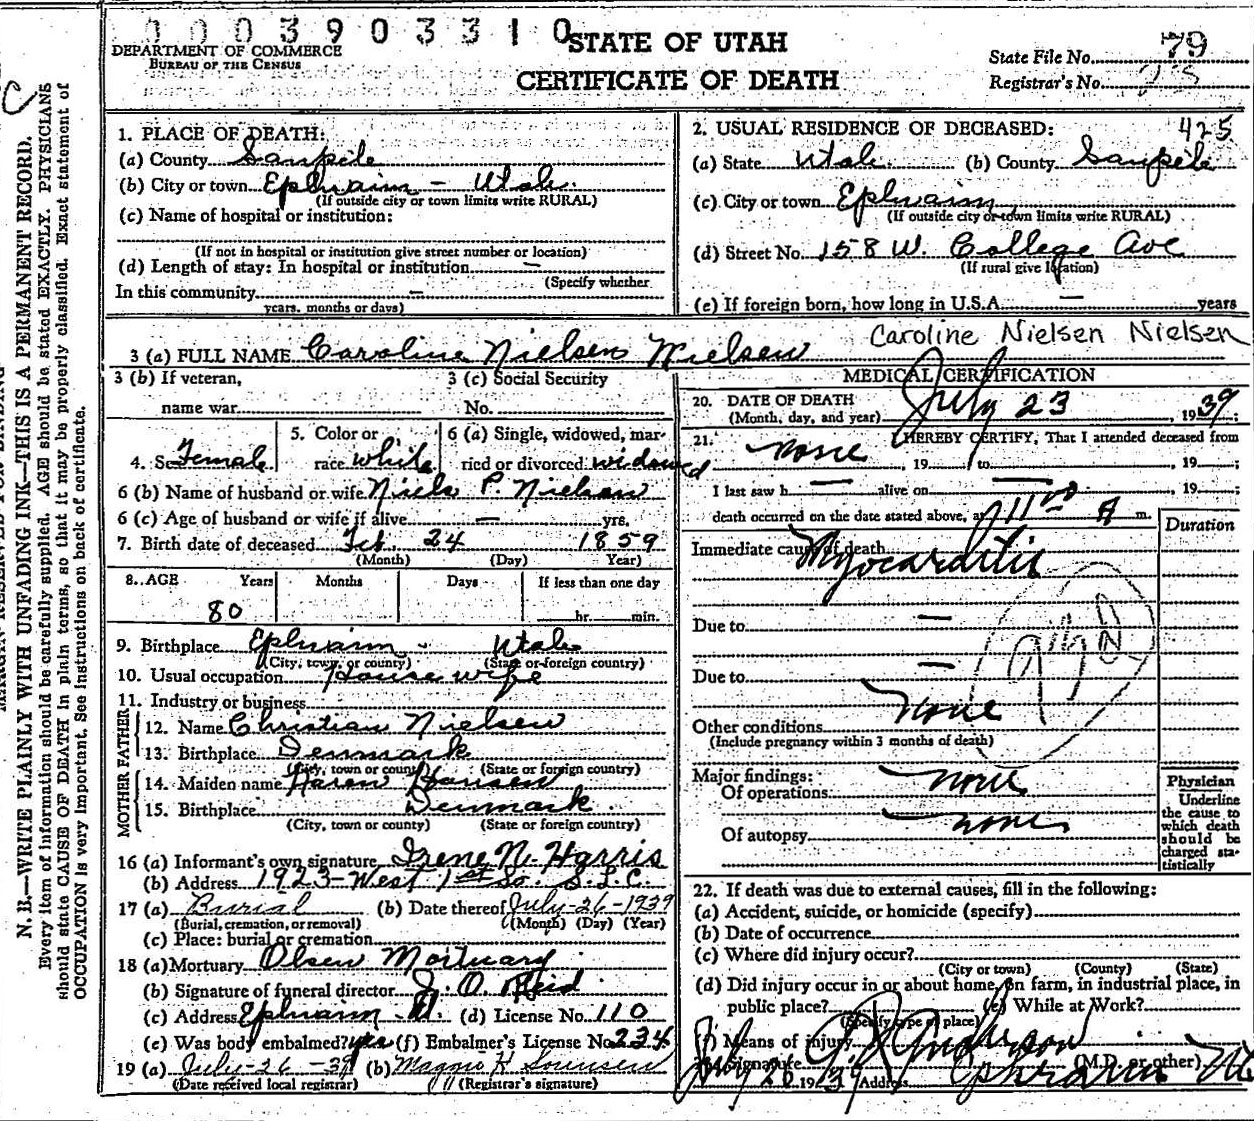 0003903310
DEPARTMENT OF COMMERCE
BUREAU OF THE CENSUS
STATE OF UTAH
CERTIFICATE OF DEATH
State File No. 79
Registrar's No.
N. B.—WRITE PLAINLY WITH UNFADING INK—THIS IS A PERMANENT RECORD.
Every item of information should be carefully supplied. AGE should be stated EXACTLY. PHYSICIANS
should state CAUSE OF DEATH in plain terms, so that it may be properly classified. Exact statement of
OCCUPATION is very important. See instructions on back of certificate.
1. PLACE OF DEATH:
(a) County Sanpete
(b) City or town Ephraim - Utah
(If outside city or town limits write RURAL)
(c) Name of hospital or institution:
(If not in hospital or institution give street number or location)
(d) Length of stay: In hospital or institution —
(Specify whether
In this community —
years, months or days)
2. USUAL RESIDENCE OF DECEASED: 425
(a) State Utah (b) County Sanpete
(c) City or town Ephraim
(If outside city or town limits write RURAL)
(d) Street No. 158 W. College Ave
(If rural give location)
(e) If foreign born, how long in U.S.A. — years
3 (a) FULL NAME Caroline Nielsen Nielsen Caroline Nielsen Nielsen
3 (b) If veteran, 3 (c) Social Security
name war No.
4. Sex Female 5. Color or race white 6 (a) Single, widowed, married or divorced widowed
6 (b) Name of husband or wife Niels P. Nielsen
6 (c) Age of husband or wife if alive — yrs.
7. Birth date of deceased Feb. 24 1859
(Month) (Day) Year)
8. AGE Years Months Days If less than one day
80 hr. min.
9. Birthplace Ephraim - Utah
(City, town, or county) (State or foreign country)
10. Usual occupation House wife
11. Industry or business
FATHER
12. Name Christian Nielsen
13. Birthplace Denmark
(City, town or county) (State or foreign country)
MOTHER
14. Maiden name Karen Hansen
15. Birthplace Denmark
(City, town or county) (State or foreign country)
16 (a) Informant's own signature Irene N. Harris
(b) Address 1923 - West 1st So. S.L.C.
17 (a) Burial (b) Date thereof July-26-1939
(Burial, cremation, or removal) (Month) (Day) (Year)
(c) Place: burial or cremation
18 (a) Mortuary Olsen Mortuary
(b) Signature of funeral director
(c) Address Ephraim U. (d) License No. 110
(e) Was body embalmed? yes (f) Embalmer's License No. 234
19 (a) July-26-39 (b) Maggie H Sorensen
(Date received local registrar) (Registrar's signature)
MEDICAL CERTIFICATION
20. DATE OF DEATH
(Month, day, and year) July 23 1939;
21. I HEREBY CERTIFY, That I attended deceased from
none, 19 to , 19 ;
I last saw h — alive on —, 19 ;
death occurred on the date stated above, at 11 00 A m.
Duration
Immediate cause of death Myocarditis
Due to —
Due to —
Other conditions none
(Include pregnancy within 3 months of death)
Major findings:
Of operations none
Of autopsy none
Physician
Underline
the cause to
which death
should be
charged sta-
tistically
22. If death was due to external causes, fill in the following:
(a) Accident, suicide, or homicide (specify)
(b) Date of occurrence
(c) Where did injury occur?
(City or town) (County) (State)
(d) Did injury occur in or about home, on farm, in industrial place, in
public place? (e) While at Work?
(Specify type of place)
(f) Means of injury
Signature Anderson (M.D. or other)
July 26 1939 Address Ephraim